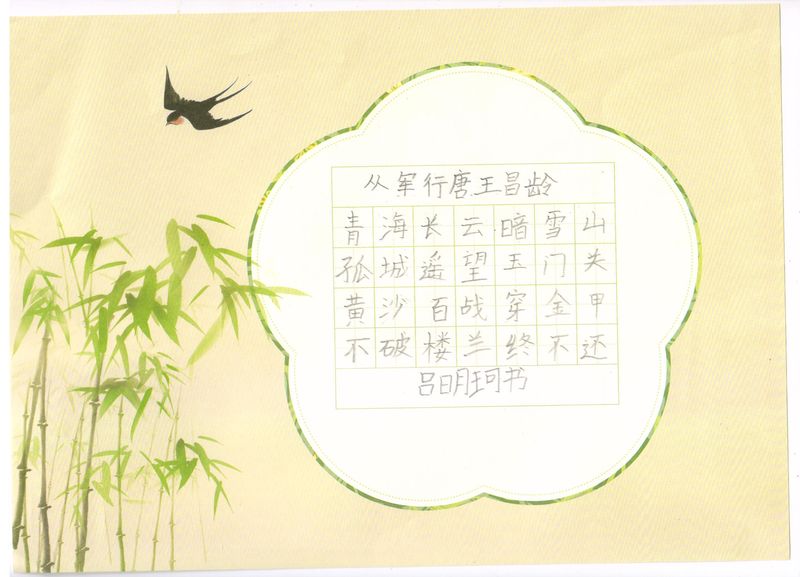 从军行唐王昌龄
青海长云暗雪山
孤城遥望玉门关
黄沙百战穿金甲
不破楼兰终不还
吕明珂书